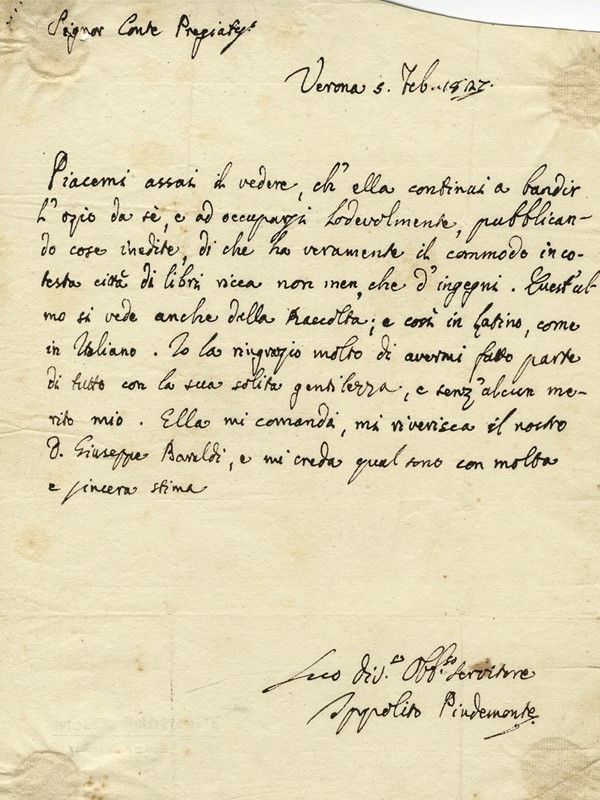 Signor Conte Pregiatis.
Verona 5. Feb. 1827.
Piacemi assai il vedere, ch'ella continui a bandir
l'ozio da sè, e ad occuparsi lodevolmente, pubblican-
do cose inedite, di che ha veramente il commodo in co-
testa città di libri ricca non men, che d'ingegni. Quest'ul-
mo si vede anche dalla Raccolta; e così in Latino, come
in Italiano. Io la ringrazio molto di avermi fatto parte
di tutto con la sua solita gentilezza, e senz'alcun me-
rito mio. Ella mi comandi, mi riverisca il nostro
D. Giuseppe Baraldi, e mi creda qual sono con molta
e sincera stima
Suo div.mo Obb.mo Servitore
Ippolito Pindemonte